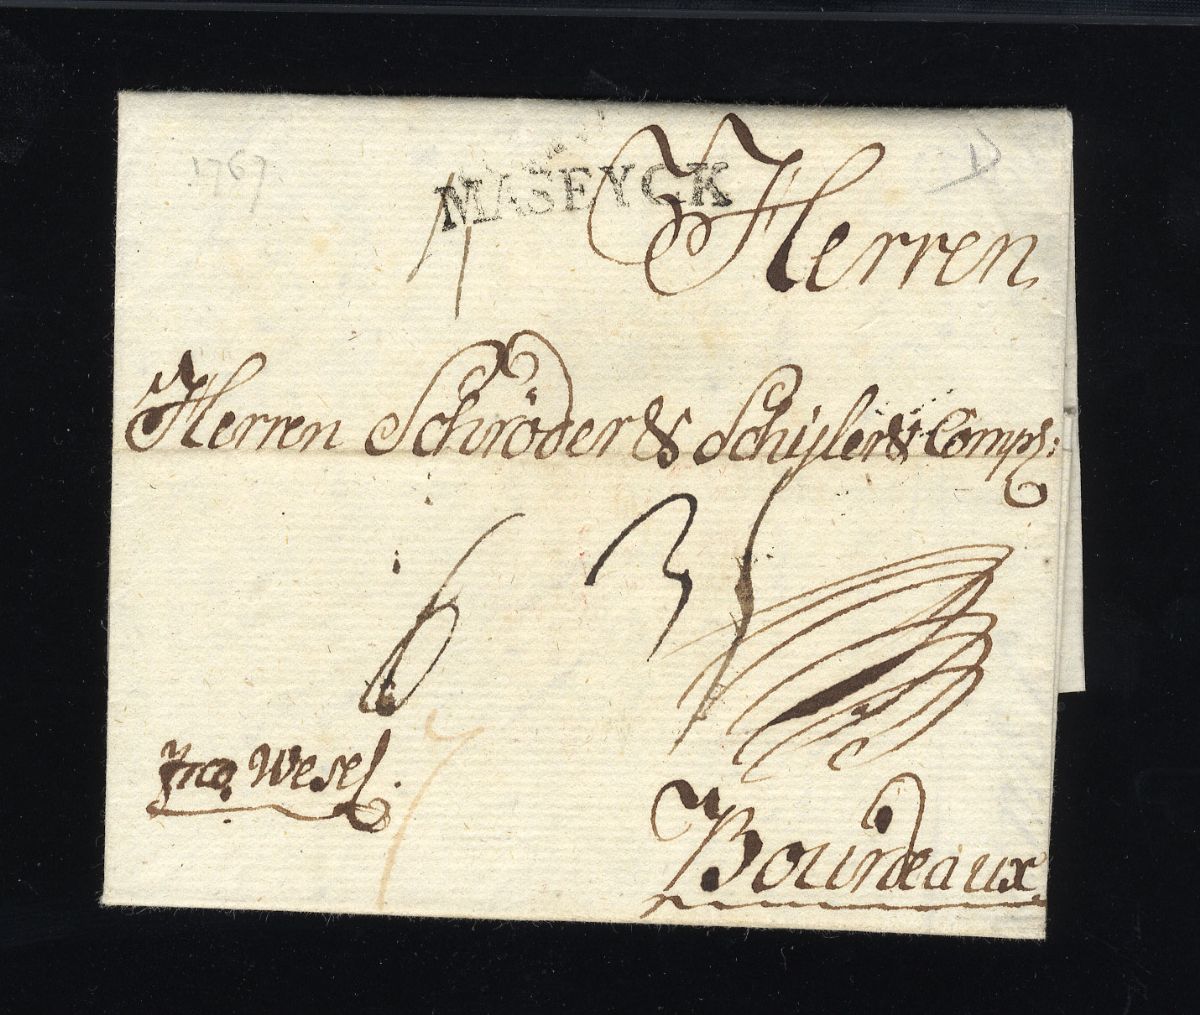 1767
MASEYCK
Herren
Herren Schröder & Schÿler & Comp:
6
fnco Wesel.
7
Bourdeaux